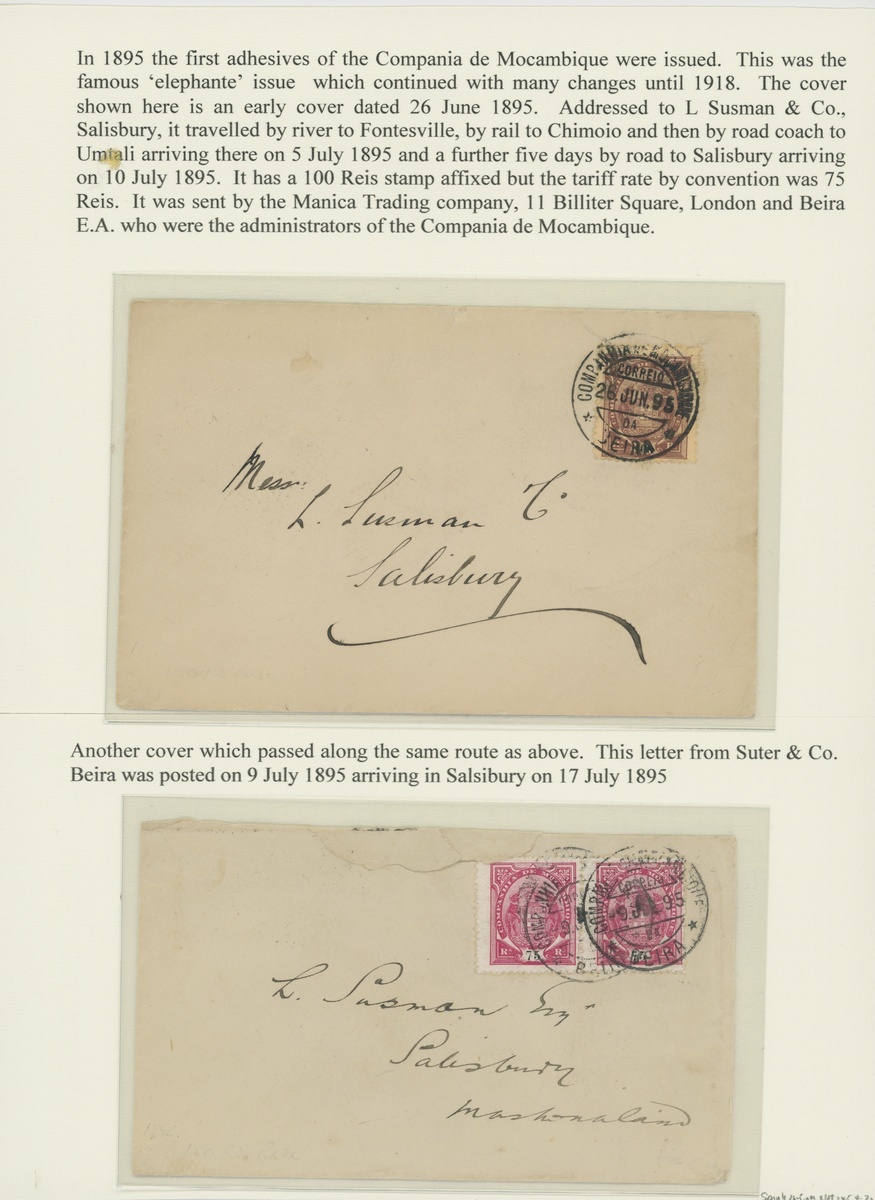 In 1895 the first adhesives of the Compania de Mocambique were issued. This was the
famous ‘elephante’ issue which continued with many changes until 1918. The cover
shown here is an early cover dated 26 June 1895. Addressed to L Susman & Co.,
Salisbury, it travelled by river to Fontesville, by rail to Chimoio and then by road coach to
Umtali arriving there on 5 July 1895 and a further five days by road to Salisbury arriving
on 10 July 1895. It has a 100 Reis stamp affixed but the tariff rate by convention was 75
Reis. It was sent by the Manica Trading company, 11 Billiter Square, London and Beira
E.A. who were the administrators of the Compania de Mocambique.
CORREIO
26.JUN.95
BEIRA
Messrs
L. Susman Co
Salisbury
Another cover which passed along the same route as above. This letter from Suter & Co.
Beira was posted on 9 July 1895 arriving in Salsibury on 17 July 1895
COMPANHIA DE
CORREIO
BEIRA
Rs 75 R
L. Susman Esqr
Salisbury
Mashonaland